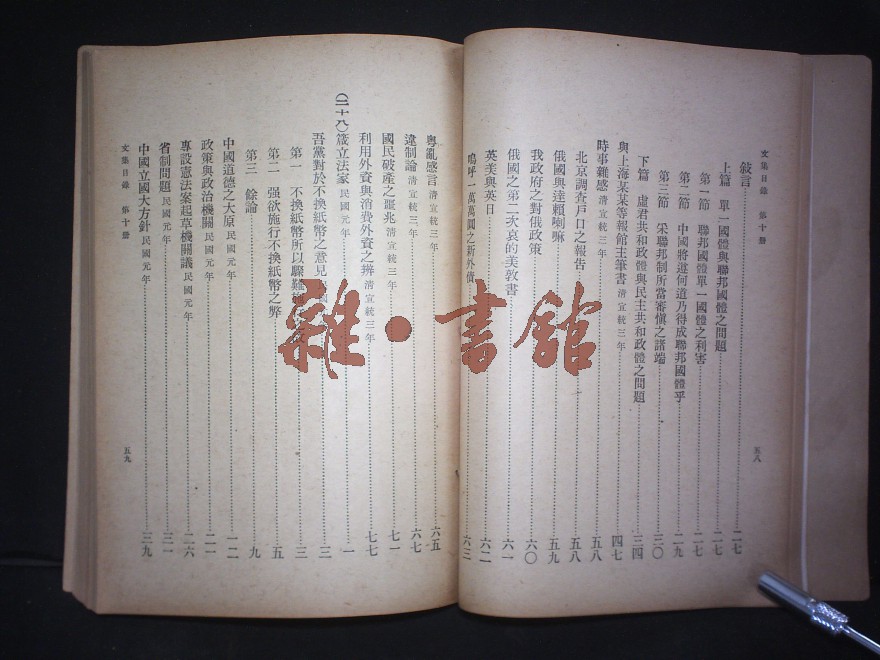 文集目錄 第十册
敍言 二七
上篇 單一國體與聯邦國體之問題 二七
第一節 聯邦國體單一國體之利害 二七
第二節 中國將遵何道乃得成聯邦國體乎 二九
第三節 采聯邦制所當審愼之諸端 三〇
下篇 虛君共和政體與民主共和政體之問題 三四
與上海某某等報館主筆書 清宣統三年 四七
時事雜感 清宣統三年 五八
北京調查戶口之報告 五八
俄國與達賴喇嘛 五九
我政府之對俄政策 六〇
俄國之第二次哀的美敦書 六一
英美與英日 六二
嗚呼一萬萬圓之新外債 六三
五八
粵亂感言 清宣統三年 六五
違制論 清宣統三年 六七
國民破產之噩兆 清宣統三年 七一
利用外資與消費外資之辨 清宣統三年 七七
(二十八)箴立法家 民國元年 一
吾黨對於不換紙幣之意見 三
第一 不換紙幣所以驟難 三
第二 强欲施行不換紙幣之弊 五
第三 餘論 九
中國道德之大原 民國元年 一二
政策與政治機關 民國元年 二一
專設憲法案起草機關議 民國元年 二六
省制問題 民國元年 三一
中國立國大方針 民國元年 三九
文集目錄 第十册
五九
雜·書館